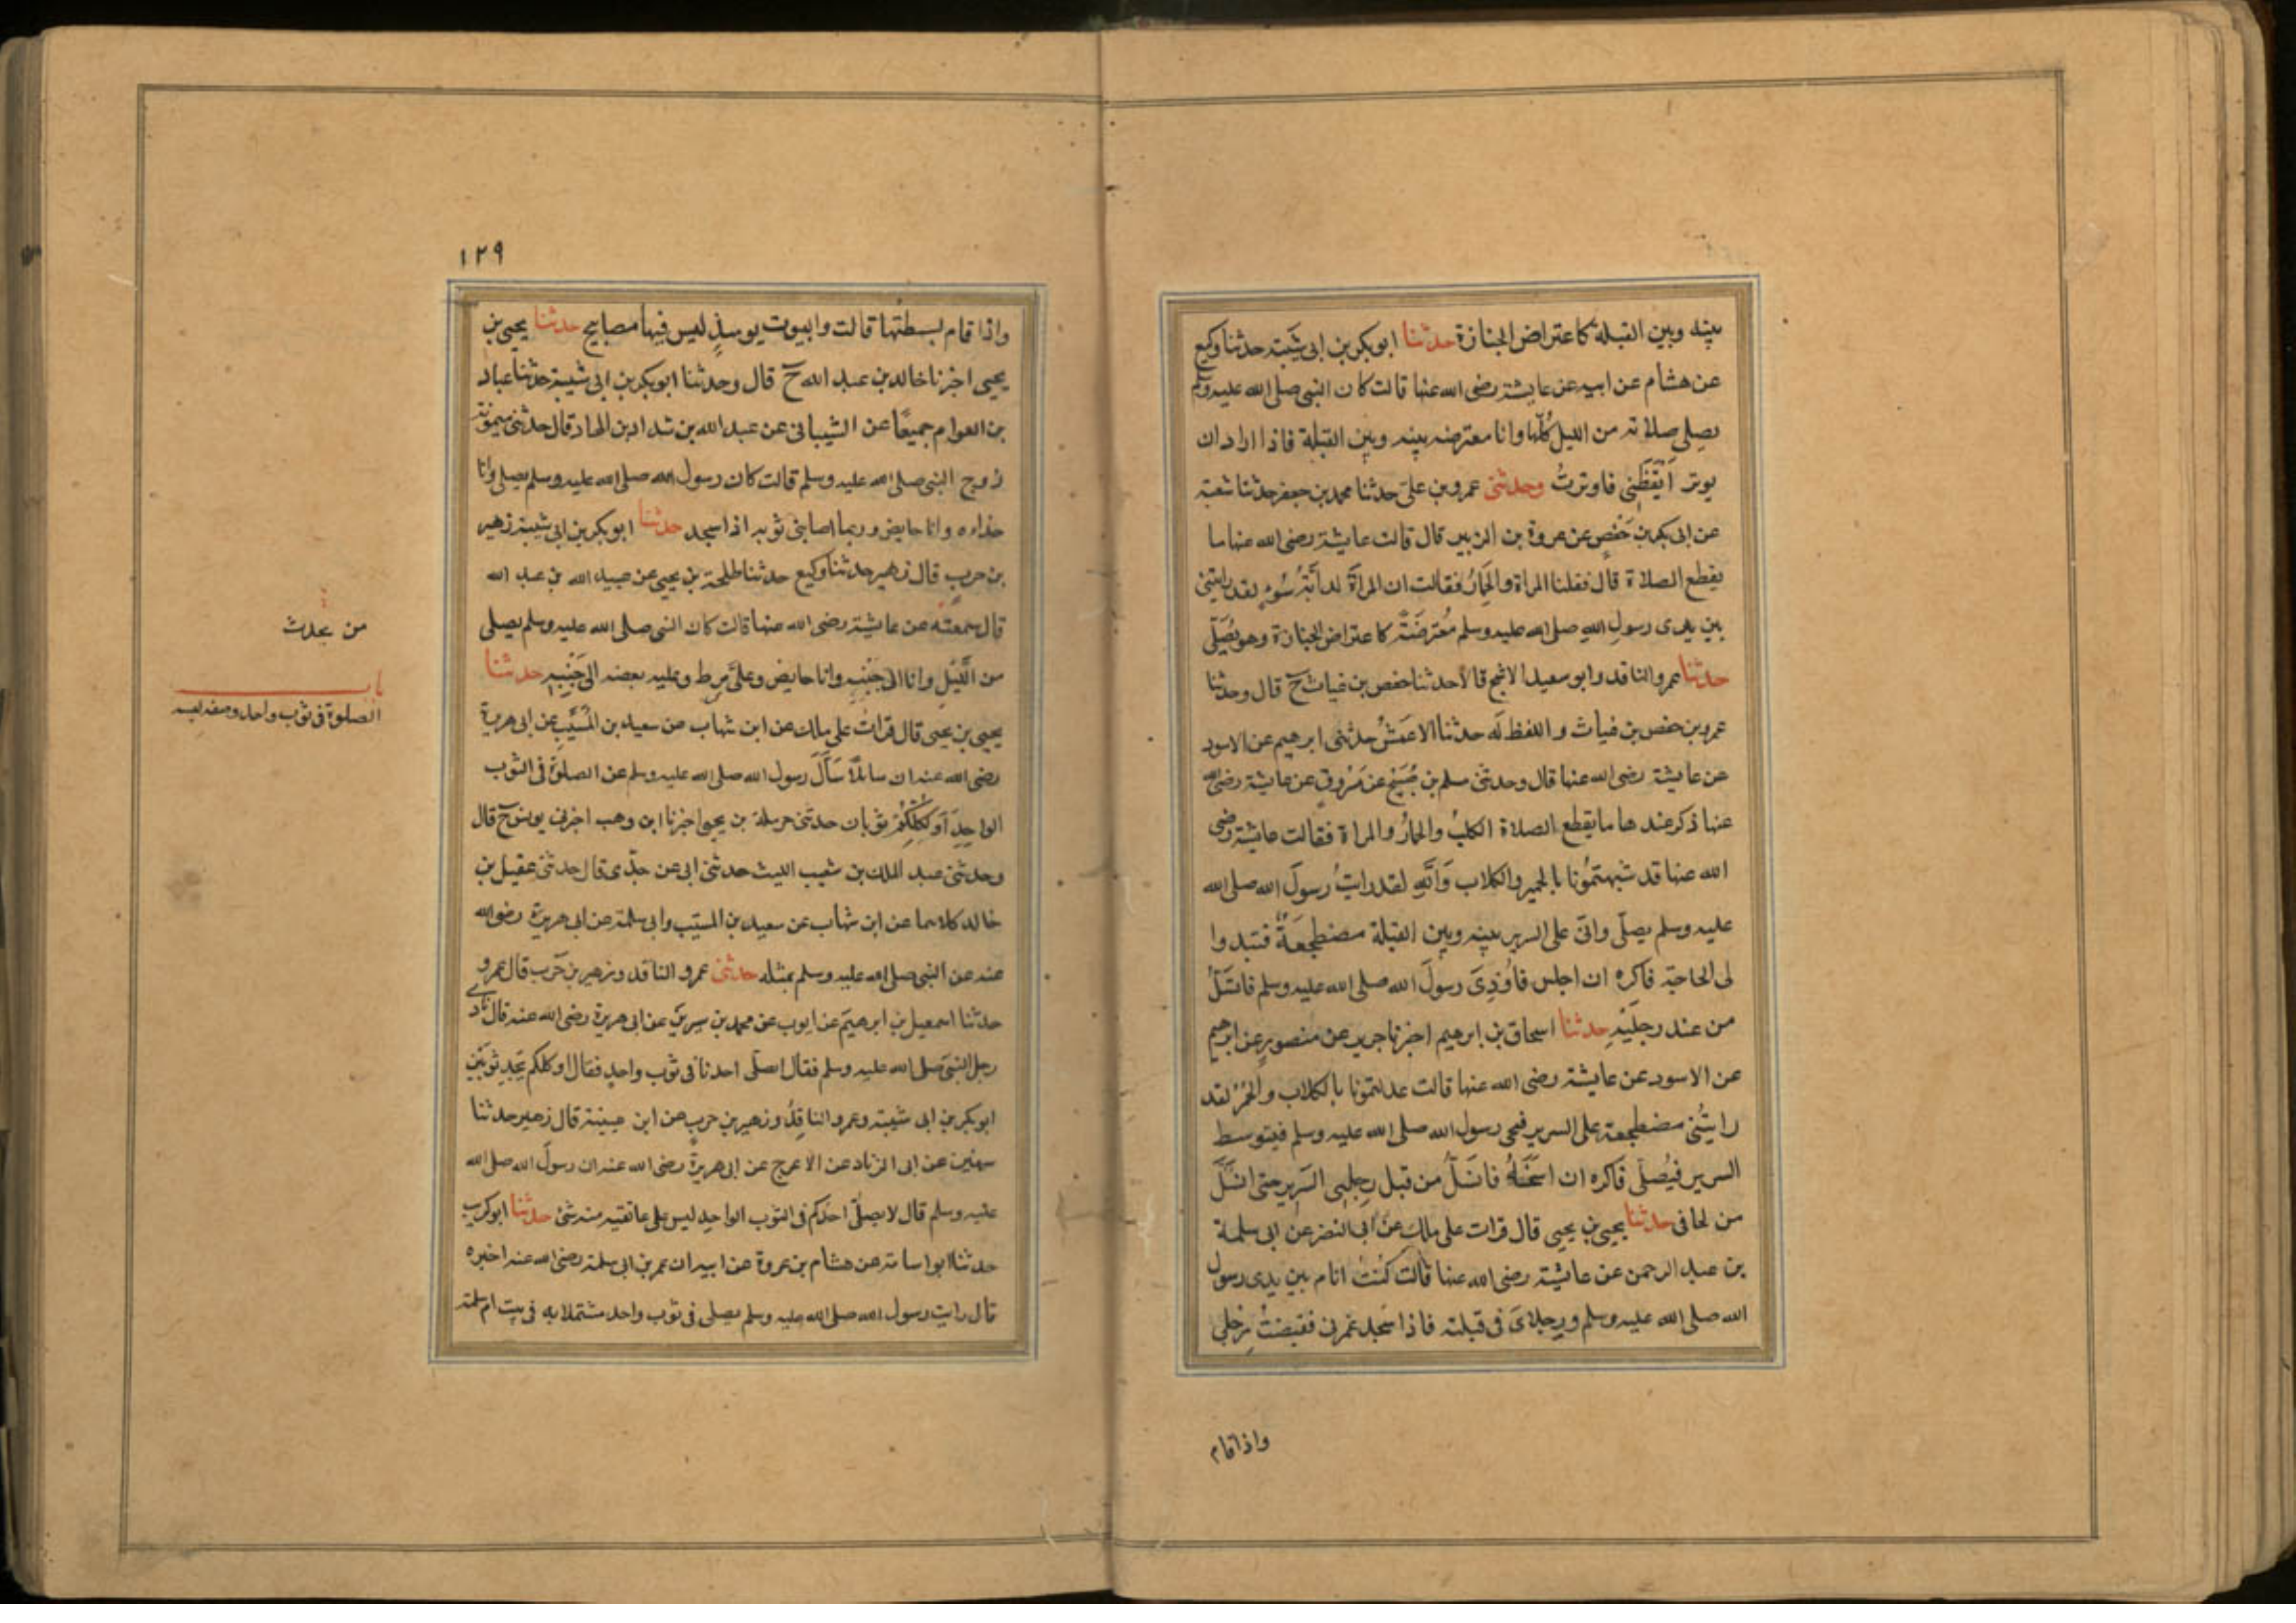 بينه وبين القبلة كاعتراض الجنازة حدثنا ابو بكر بن ابى شيبة حدثنا وكيع
عن هشام عن ابيه عن عايشة رضى الله عنها قالت كان النبى صلى الله عليه وسلم
يصلى صلاته من الليل كُلّها وانا معترضه بينه وبين القبلة فاذا اراد ان
يوتر اَيْقَظَنِى فاوترتُ وحدثنى عمرو بن علىّ حدثنا محمد بن جعفر حدثنا شعبة
عن ابى بكر بن حَفْصٍ عن عروة بن الزبير قال قالت عايشة رضى الله عنها ما
يقطع الصلاة قال فقلنا المراة والحِمَارُ فقالت ان المراَةَ لدابَّةُ سُوْءٍ لقد رايتنى
بين يدى رسولِ اللهِ صلى الله عليه وسلم مُعْترضَةً كاعتراض الجنازة وهو يُصَلّى
حدثنا عمرو الناقد وابو سعيد الاشج قالا حدثنا حفص بن غياث ح قال وحدثنا
عمر بن حفص بن غياث واللفظ له حدثنا الاعمشُ حدثنى ابرهيم عن الاسود
عن عايشة رضى الله عنها قال وحدثنى مسلم بن صُبَيْحٍ عن مَسْروقٍ عن عايشة رضى الله
عنها ذكر عند ها ما يقطع الصلاة الكلبُ والحمارُ والمراة فقالت عايشة رضى
الله عنها قد شبهتمُونا بالحمير والكلاب وَاللهِ لقد رايتُ رسولَ الله صلى الله
عليه وسلم يصلّى وانّى على السرير بينه وبين القبلة مضطجعَةٌ فتبدوا
لى الحاجة فاكره ان اجلس فاُوْذِىَ رسولَ الله صلى الله عليه وسلم فانسَلّ
من عند رجلَيْهِ حدثنا اسحاق بن ابرهيم اخبرنا جرير عن منصورٍ عن ابرهيم
عن الاسود عن عايشة رضى الله عنها قالت عدلتمونا بالكلاب والحُمُر لقد
رايتُنى مضطجعة على السرير فيجى رسول الله صلى الله عليه وسلم فيتوسط
السرير فيُصلّى فَاكره ان اسنَحَهُ فانسَلُّ من قبل رِجلَىِ السَرير حتى انسَلَّ
من لحافى حدثنا يحيى بن يحيى قال قرات على مالك عن ابى النضر عن ابى سلمة
بن عبد الرحمن عن عايشة رضى الله عنها قالت كُنتُ انام بين يدى رسول
الله صلى الله عليه وسلم ورجلاىَ فى قبلته فاذا سَجد غمزنى فقبضتُ رجلى
واذا قام
١٢٩
واذا قام بسطتُها قالت والبيوت يوميذٍ ليس فيها مصابيح حدثنا يحيى بن
يحيى اخبرنا خالد بن عبد الله ح قال وحدثنا ابو بكر بن ابى شيبة حدثنا عباد
بن العوام جميعًا عن الشيبانى عن عبد الله بن شداد بن الهاد قال حدثتنى ميمونة
زوج النبى صلى الله عليه وسلم قالت كان رسول الله صلى الله عليه وسلم يصلى وانا
حذاءه وانا حايض وربما اصابنى ثوبه اذا سجد حدثنا ابو بكر بن ابى شيبة زهير
بن حربٍ قال زهير حدثنا وكيع حدثنا طلحة بن يحيى عن عبيد الله بن عبد الله
قال سمعتُه عن عايشة رضى الله عنها قالت كان النبى صلى الله عليه وسلم يصلى
من اللَّيْلِ وانا الى جَنْبِهِ وانا حايض وعلَىَّ مِرط وعليه بعضه الى جَنْبِهِ حدثنا
يحيى بن يحيى قال قراتُ على مالك عن ابن شهاب عن سعيد بن المُسَيَّبِ عن ابى هريرة
رضى الله عنه ان سائلاً سَألَ رسول الله صلى الله عليه وسلم عن الصلوة فى الثوب
الواحِدِ اَوَ لِكُلِّكُمْ ثوبان حدثنى حرملة بن يحيى اخبرنا ابن وهب اخبرنى يونس ح قال
وحدثنى عبد الملك بن شعيب الليث حدثنى ابى عن جدّى قال حدثنى عقيل بن
خالد كلاهما عن ابن شهاب عن سعيد بن المسيّب وابى سلمة عن ابى هريرة رضى الله
عنه عن النبى صلى الله عليه وسلم بمثله حدثنى عمرو الناقد وزهير بن حَرب قال عمرو
حدثنا اسمعيل بن ابرهيمَ عن ايوب عن محمد بن سِرينَ عن ابى هريرة رضى الله عنه قال نادى
رجل النبىَّ صلى الله عليه وسلم فقال ايصلّى احدنا فى ثوب واحدٍ فقال او كلكم يَجِدِ ثوبَيْنِ
ابو بكر بن ابى شيبة وعمرو الناقِدُ وزهير بن حربٍ عن ابن عيينة قال زهير حدثنا
سفين عن ابى الزناد عن الاعرج عن ابى هريرة رضى الله عنه ان رسولَ الله صلى الله
عليه وسلم قال لا يصلّى احدُكم فى الثوب الواحِدِ ليس على عاتقيه منه شئ حدثنا ابو كريب
حدثنا ابو اسامة عن هشام بن عروة عن ابيه ان عمر بن ابى سلمة رضى الله عنه اخبره
قال رايت رسول الله صلى الله عليه وسلم يصلى فى ثوب واحد مشتملا به فى بيت ام سلمة
من يحدث
باب
الصلوة فى ثوب واحد وصفه لبسه